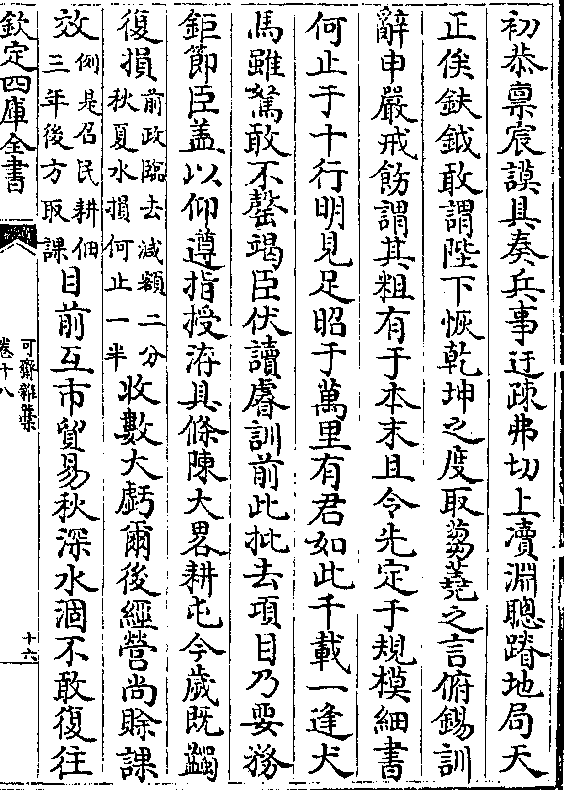 初恭稟宸謨具奏兵事迂疎弗切上瀆淵聰蹐地局天
正俟鈇鉞敢謂陛下恢乾坤之度取芻蕘之言俯錫訓
辭申嚴戒飭謂其粗有于本末且令先定于規模細書
何止于十行明見足昭于萬里有君如此千載一逢犬
馬雖駑敢不罄竭臣伏讀睿訓前此抵去項目乃要務
鉅節臣盖以仰遵指授洊具條陳大畧耕屯今歲既蠲
復損前政臨去減額二分秋夏水損何止一半收數大虧爾後經營尚賒課
效例是召民耕佃三年後方取課目前互市貿易秋深水涸不敢復往
欽定四庫全書
可齋雜藁
卷十八
十六